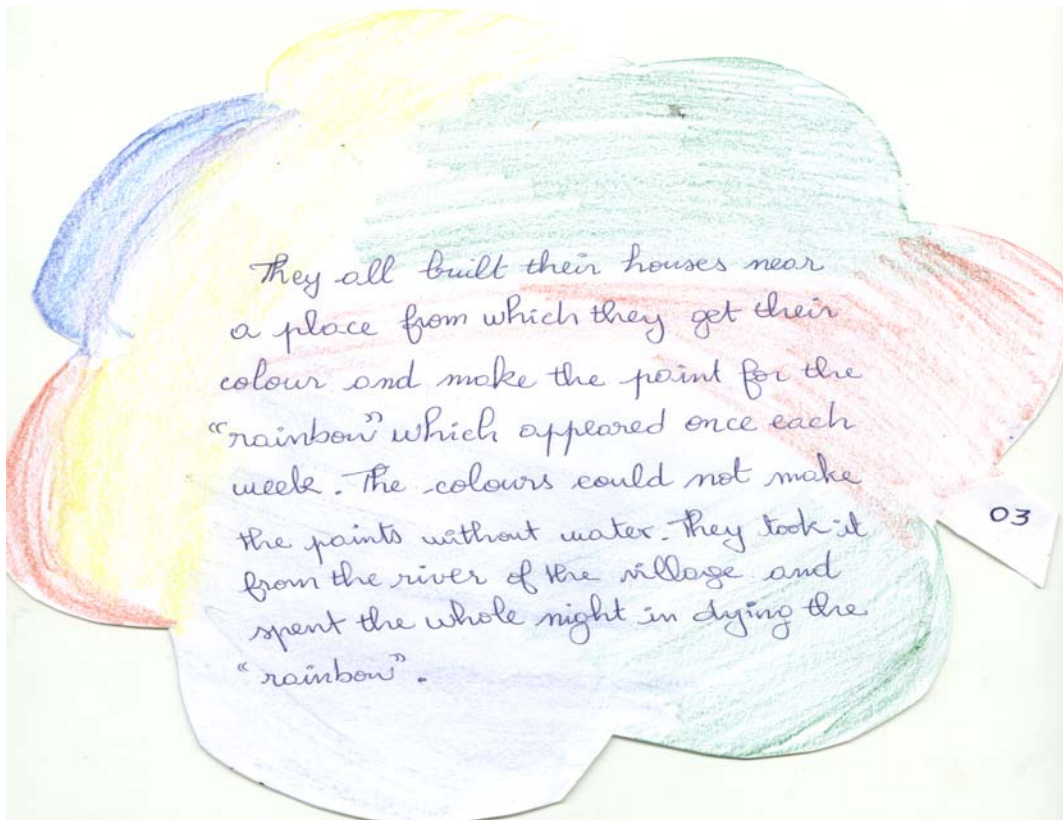 They all built their houses near
a place from which they get their
colour and make the paint for the
“rainbow” which appeared once each
week. The colours could not make
the paints without water. They took it
from the river of the village and
spent the whole night in dying the
“rainbow”.
03